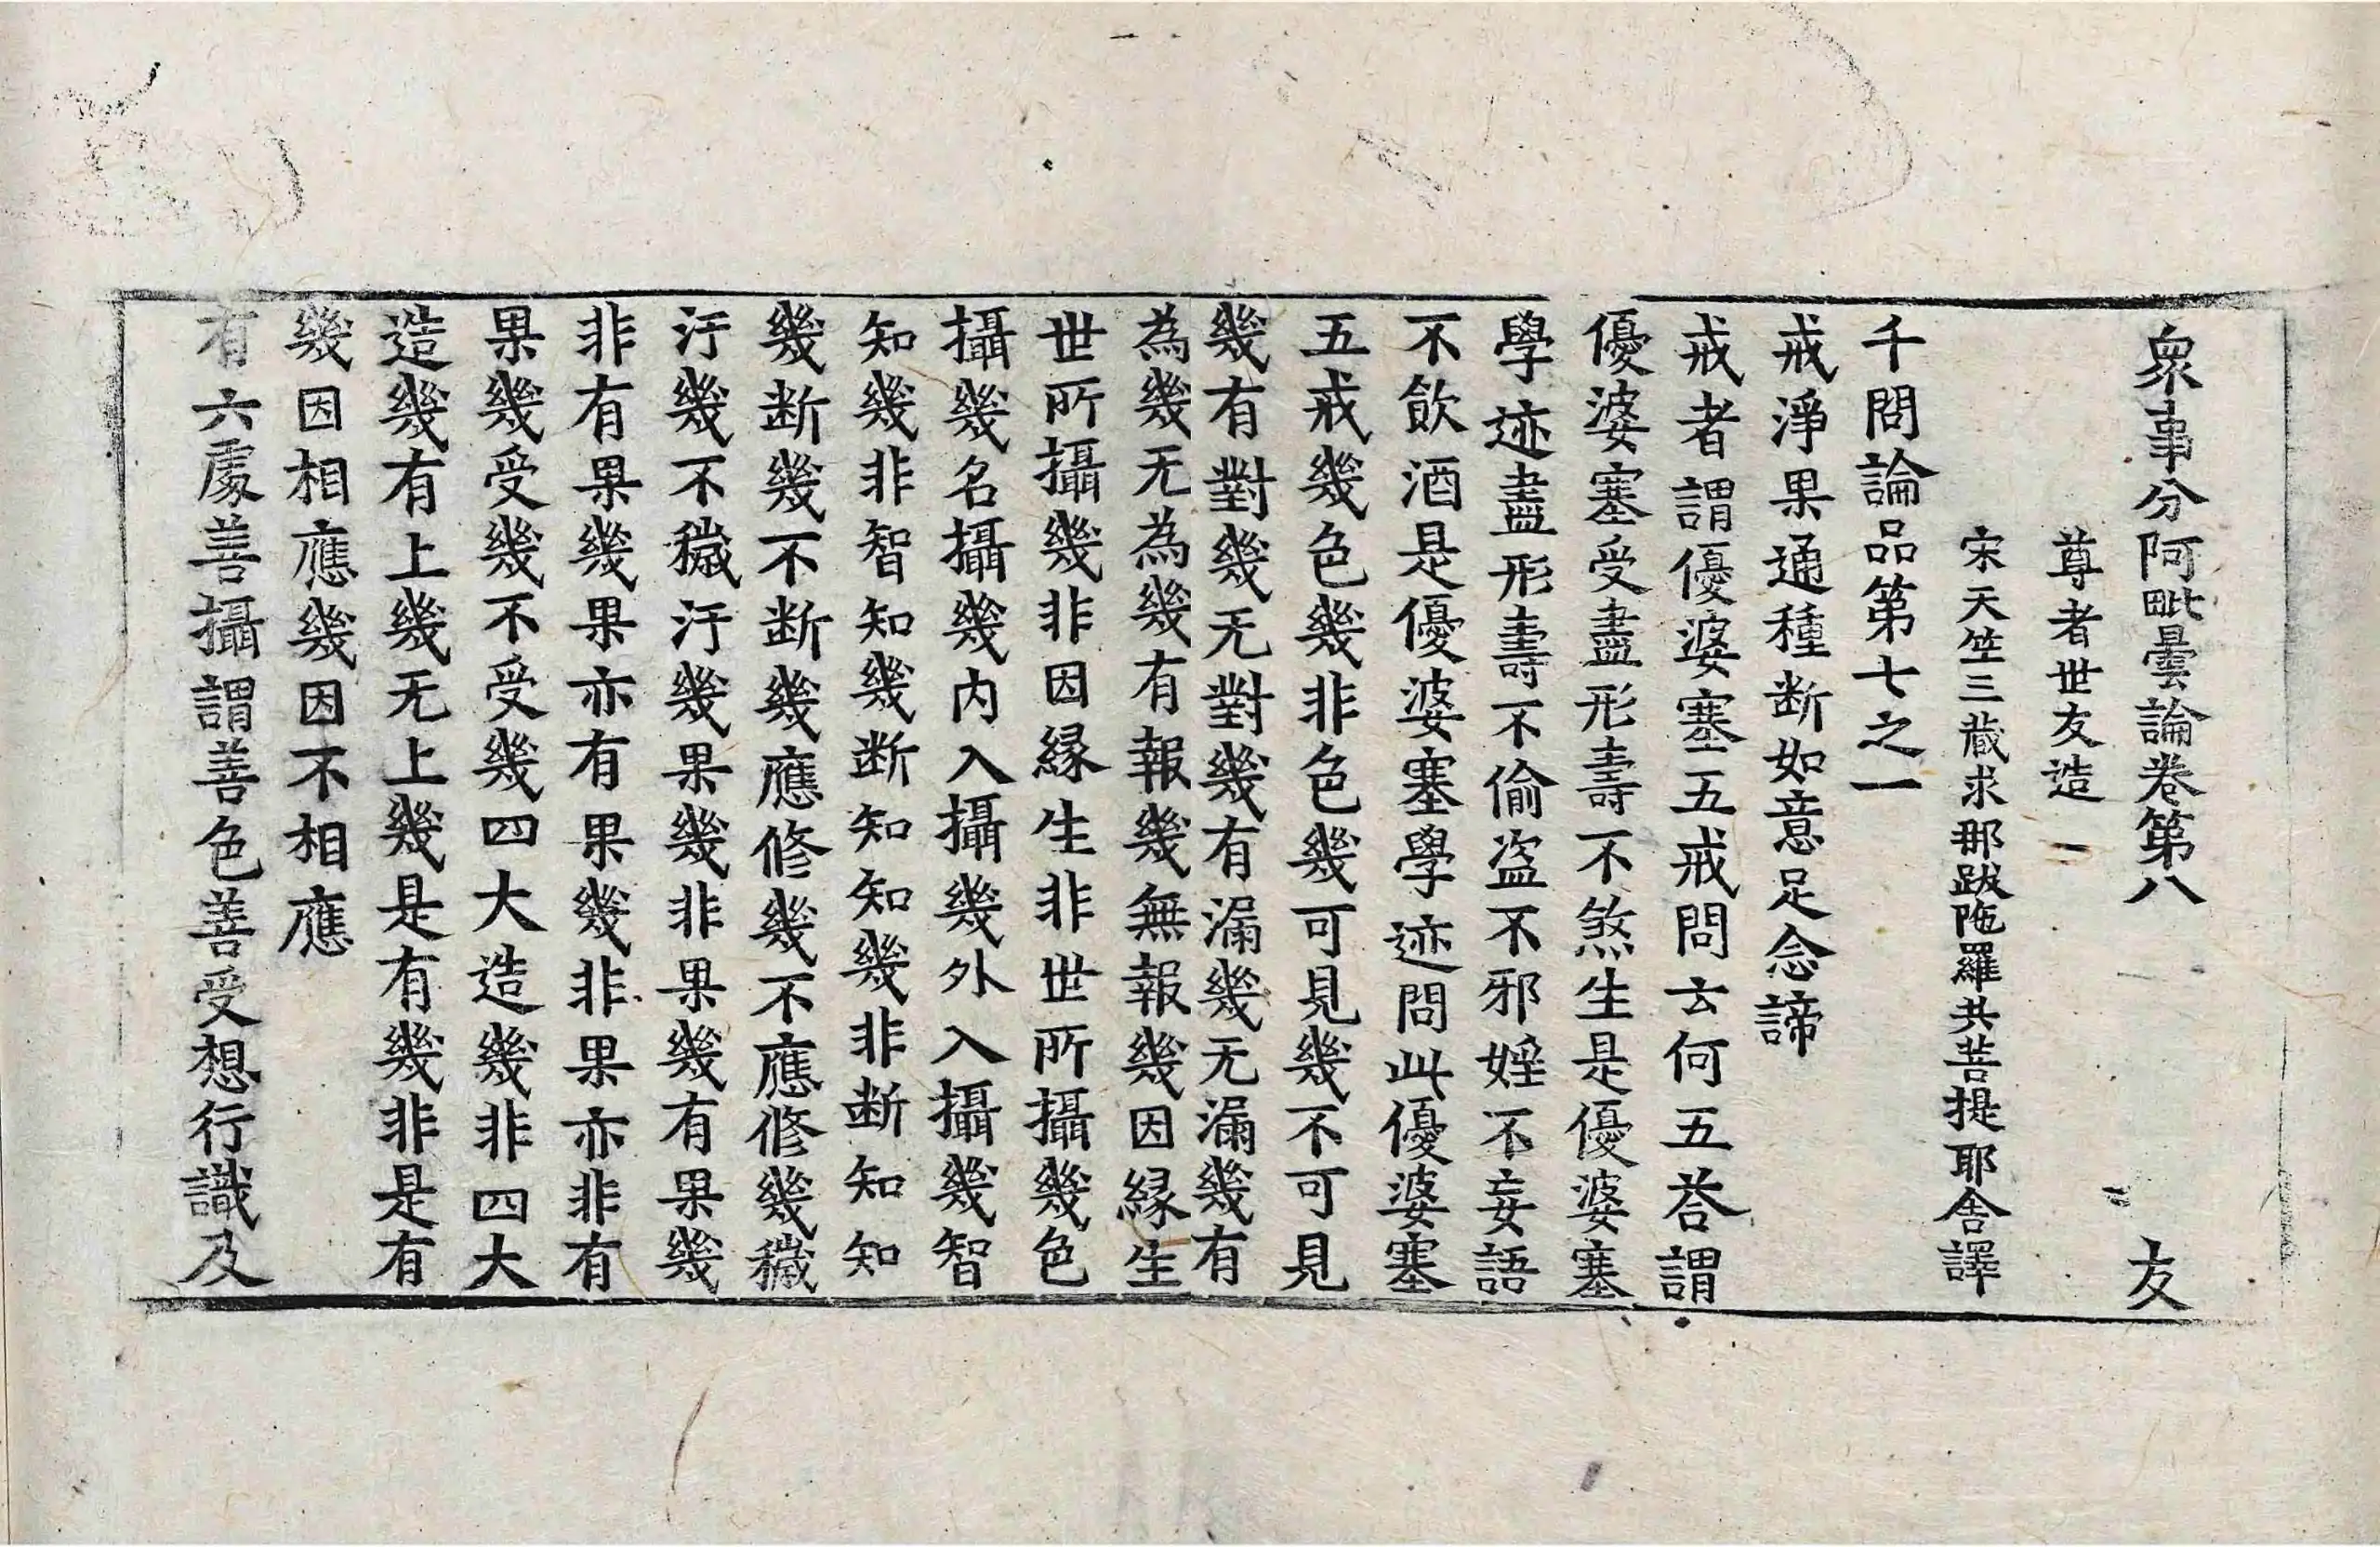 衆事分阿毗曇論卷第八　友
尊者世友造
宋天竺三藏求那跋陁羅共菩提耶舍譯
千問論品第七之一
戒淨果通種断如意足念諦
戒者謂優婆塞五戒問云何五荅謂
優婆塞受盡形壽不煞生是優婆塞
學迹盡形壽不偷盜不邪婬不妄語
不飲酒是優婆塞學迹問此優婆塞
五戒幾色幾非色幾可見幾不可見
幾有對幾无對幾有漏幾无漏幾有
為幾无為幾有報幾無報幾因縁生
世所攝幾非因縁生非世所攝幾色
攝幾名攝幾内入攝幾外入攝幾智
知幾非智知幾断知知幾非断知知
幾断幾不断幾應修幾不應修幾穢
汙幾不穢汙幾果幾非果幾有果幾
非有果幾果亦有果幾非果亦非有
果幾受幾不受幾四大造幾非四大
造幾有上幾无上幾是有幾非是有
幾因相應幾因不相應
有六處善攝謂善色善受想行識及